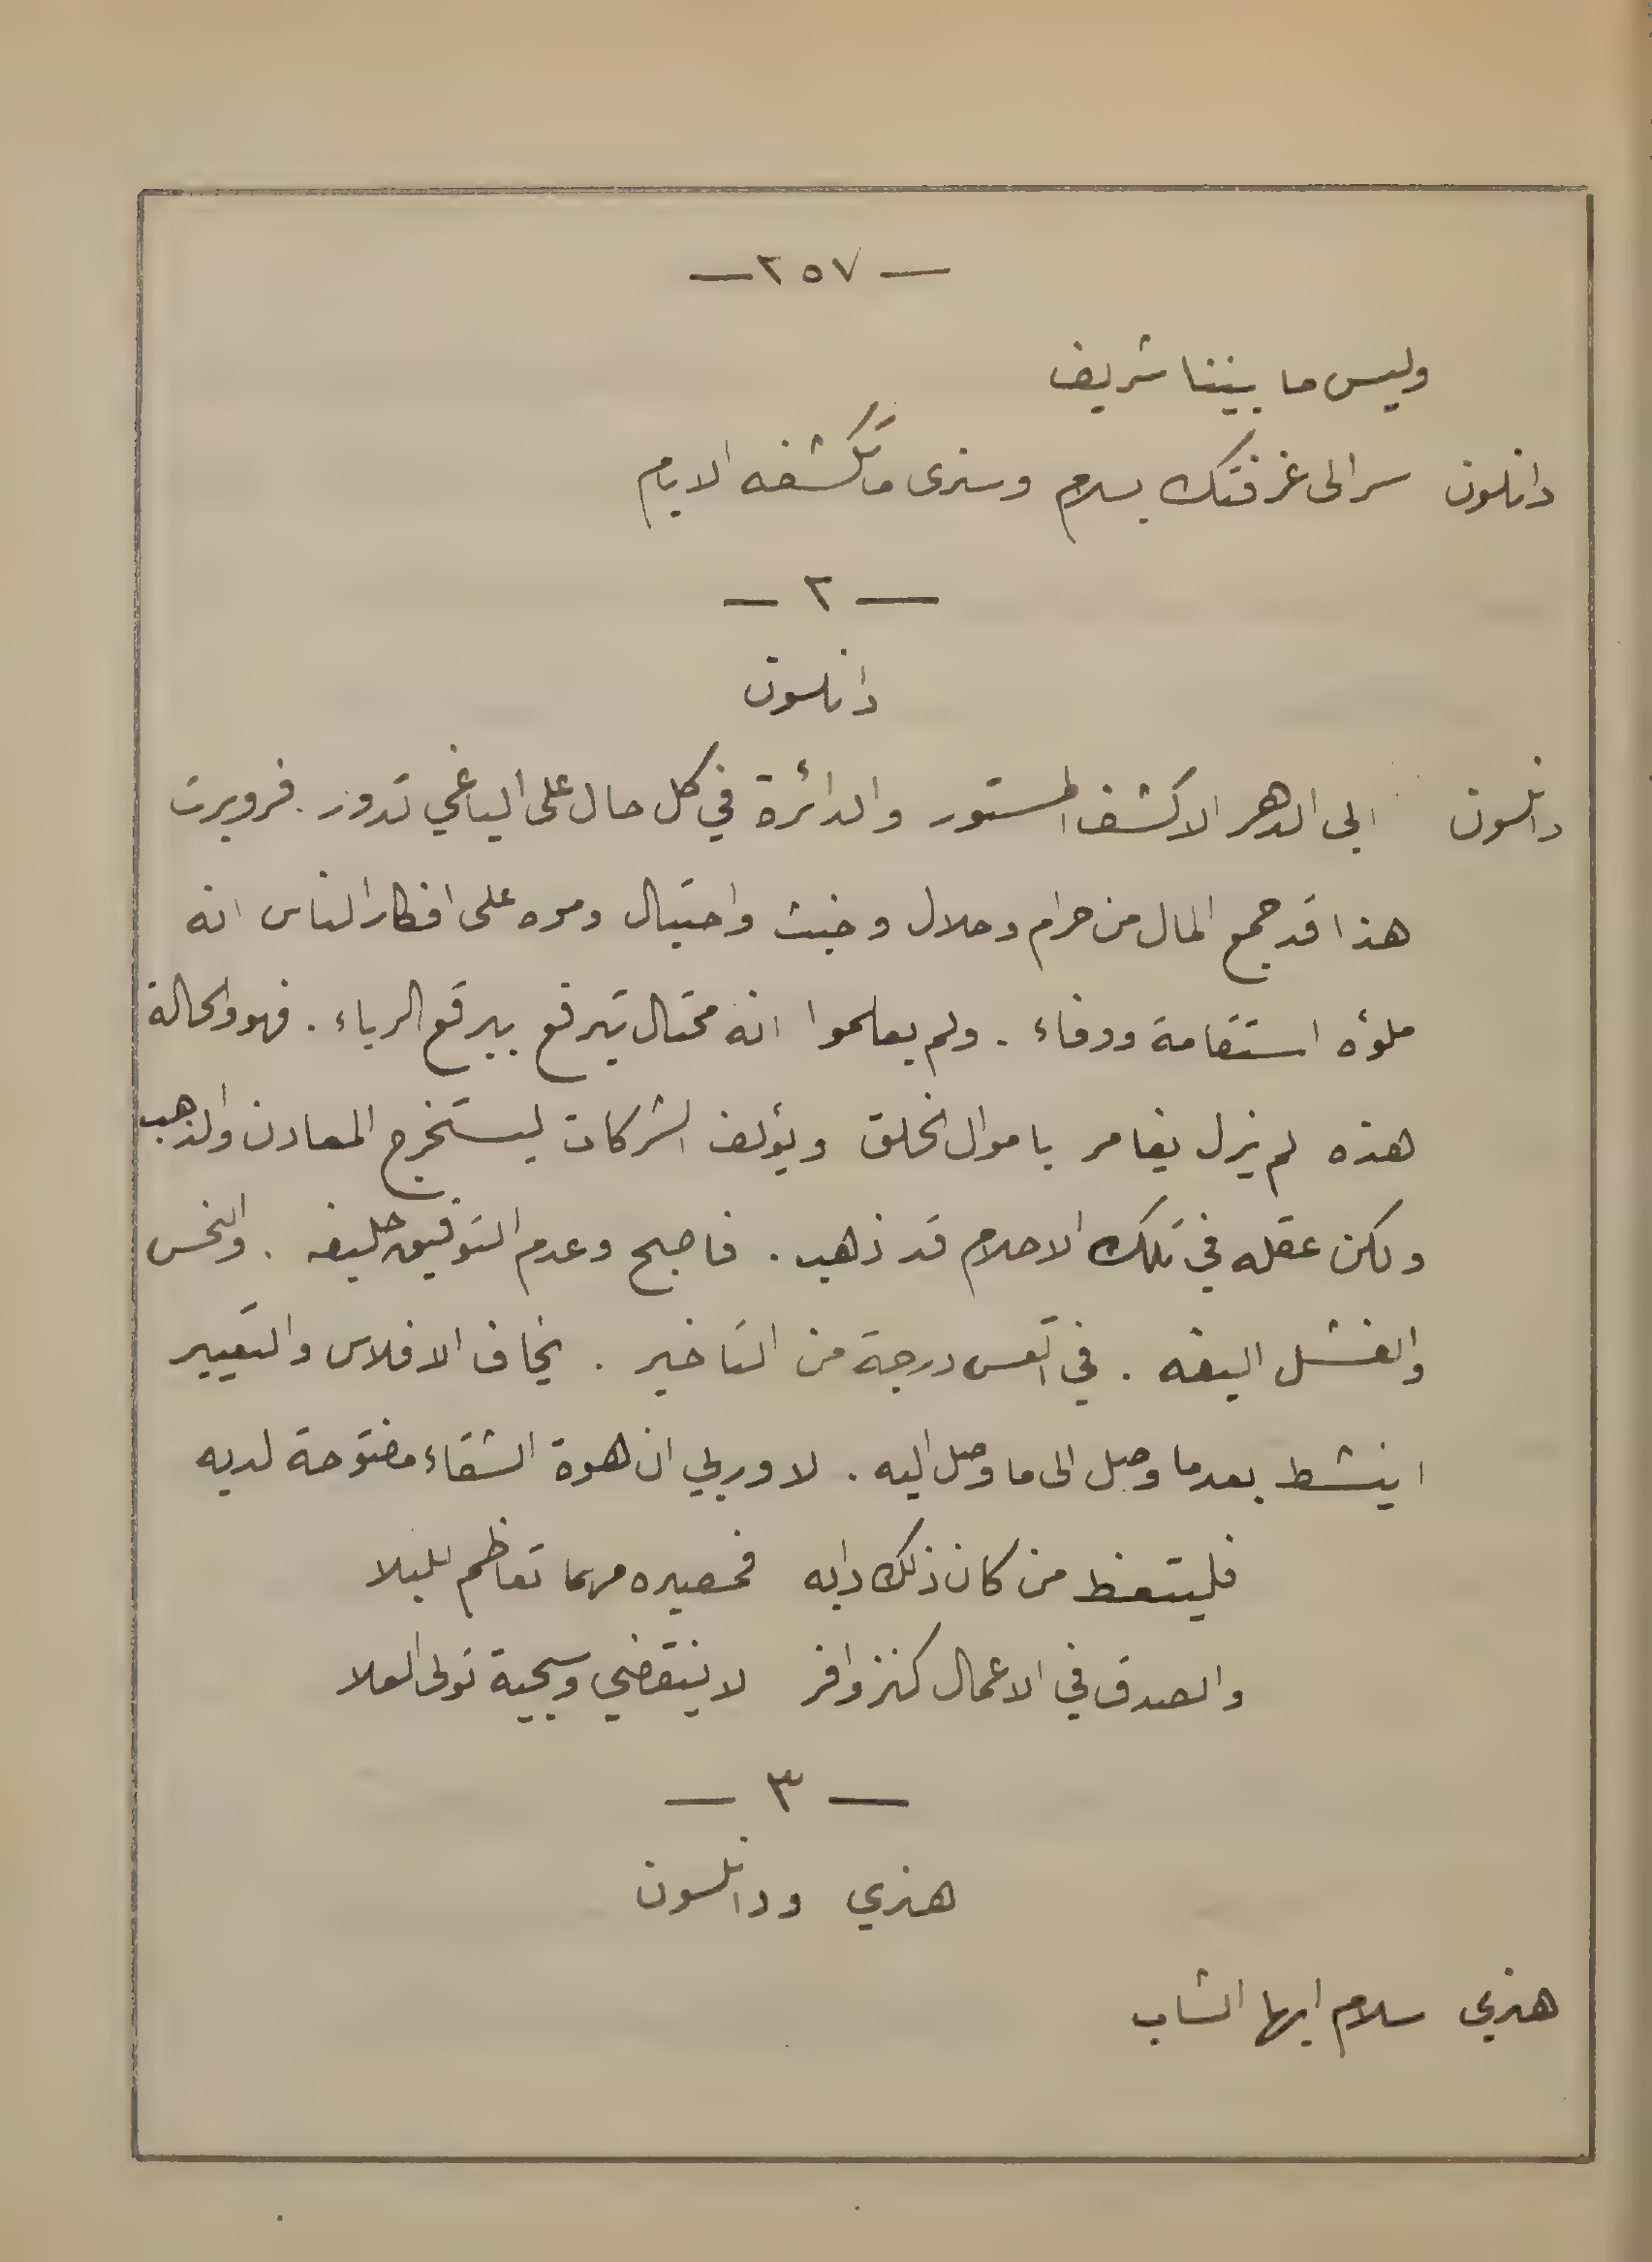 — ٢٥٧ —
وليس ما بيننا شريف
دانلسون سر الى غرفتك بسلام وسنرى ما تكشفه الايام
— ٢ —
دانلسون
دانلسون ابى الدهر الا كشف المستور والدائرة في كل حال على الباغي تدور . فروبرت
هذا قد جمع المال من حرام وحلال وخبث واحتيال وموه على افكار الناس انه
ملؤه استقامة ووفاء . ولم يعلموا انه محتال يتبرقع ببرقع الرياء . فهو والحالة
هذه لم يزل يغامر باموال الخلق ويؤلف الشركات ليستخرج المعادن والذهب
ولكن عقله في تلك الاحلام قد ذهب . فاصبح وعدم التوفيق حليفه . والنحس
والفشل اليفه . في اتعس درجة من التاخير . يخاف الافلاس والتعيير
اينشط بعدما وصل الى ما وصل اليه . لا وربي ان هوة الشقاء مفتوحة لديه
فليتعظ من كان ذلك دابه فمصيره مهما تعاظم للبلا
والصدق في الاعمال كنز وافر لا ينقضي وسجية تولى العلا
— ٣ —
هنري ودانلسون
هنري سلام ايها الشاب